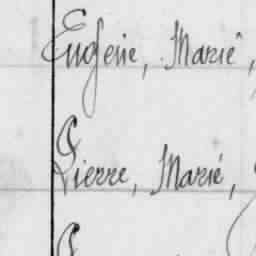 Eugénie, Marie,
Pierre, Marié,